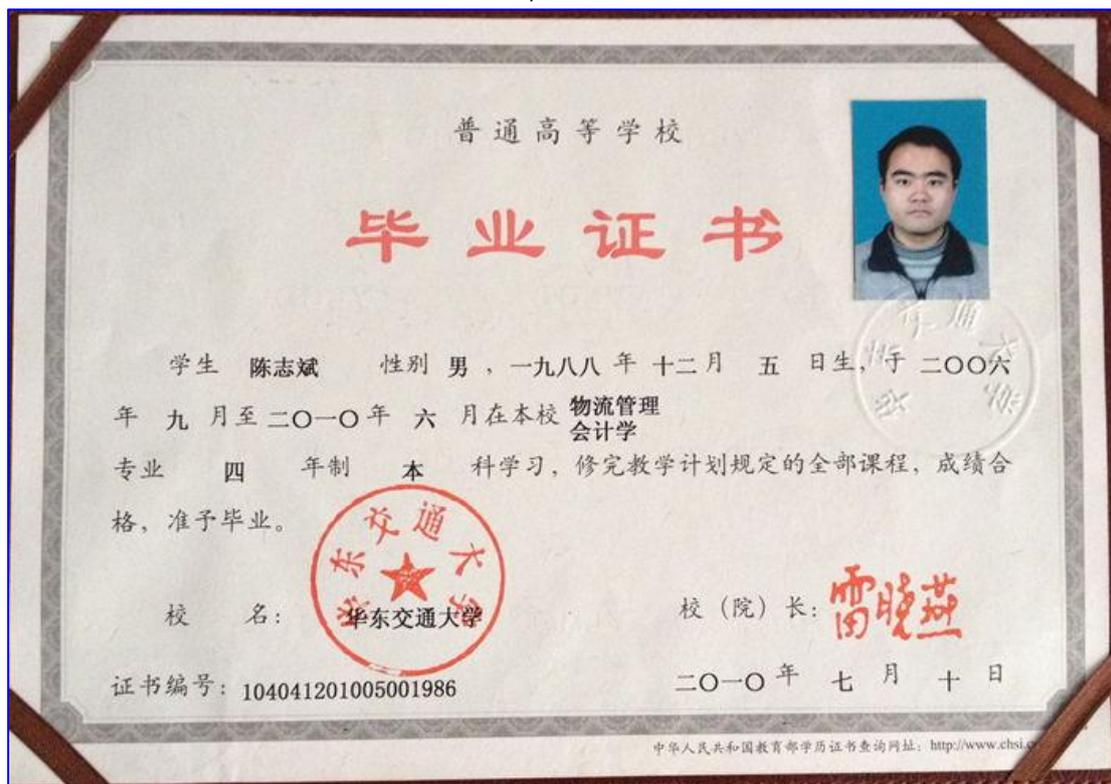 普通高等学校
毕业证书
学生 陈志斌 性别 男 ，一九八八 年 十二 月 五 日生，于 二〇〇六
年 九 月至 二〇一〇 年 六 月在本校 物流管理
会计学
专业 四 年制 本 科学习，修完教学计划规定的全部课程，成绩合
格，准予毕业。
华东交通大学
校 名： 华东交通大学
校（院）长：雷晓燕
证书编号：104041201005001986
二〇一〇 年 七 月 十 日
中华人民共和国教育部学历证书查询网址：http://www.chsi.c